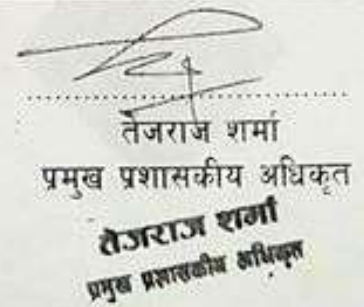 तेजराज शर्मा
प्रमुख प्रशासकीय अधिकृत
तेजराज शर्मा
प्रमुख प्रशासकीय अधिकृत